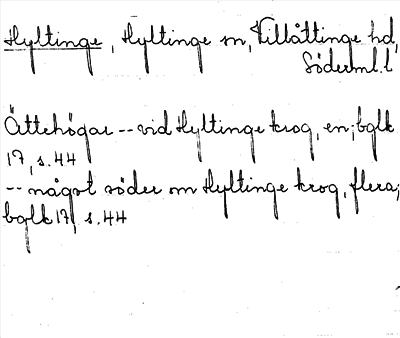 Hyltinge, Hyltinge sn, Villåttinge hd,
Söderml.l
Ättehögar -- vid Hyltinge krog, en; bglk
17, s. 44
-- något söder om Hyltinge krog, flera;
bglk 17, s. 44